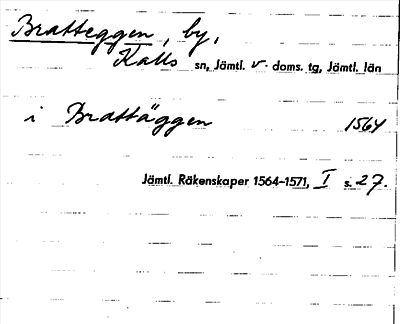 Bratteggen, by,
Kalls sn, Jämtl. v. doms. tg, Jämtl. län
i Brattäggen 1564
Jämtl. Räkenskaper 1564–1571, I s. 27.